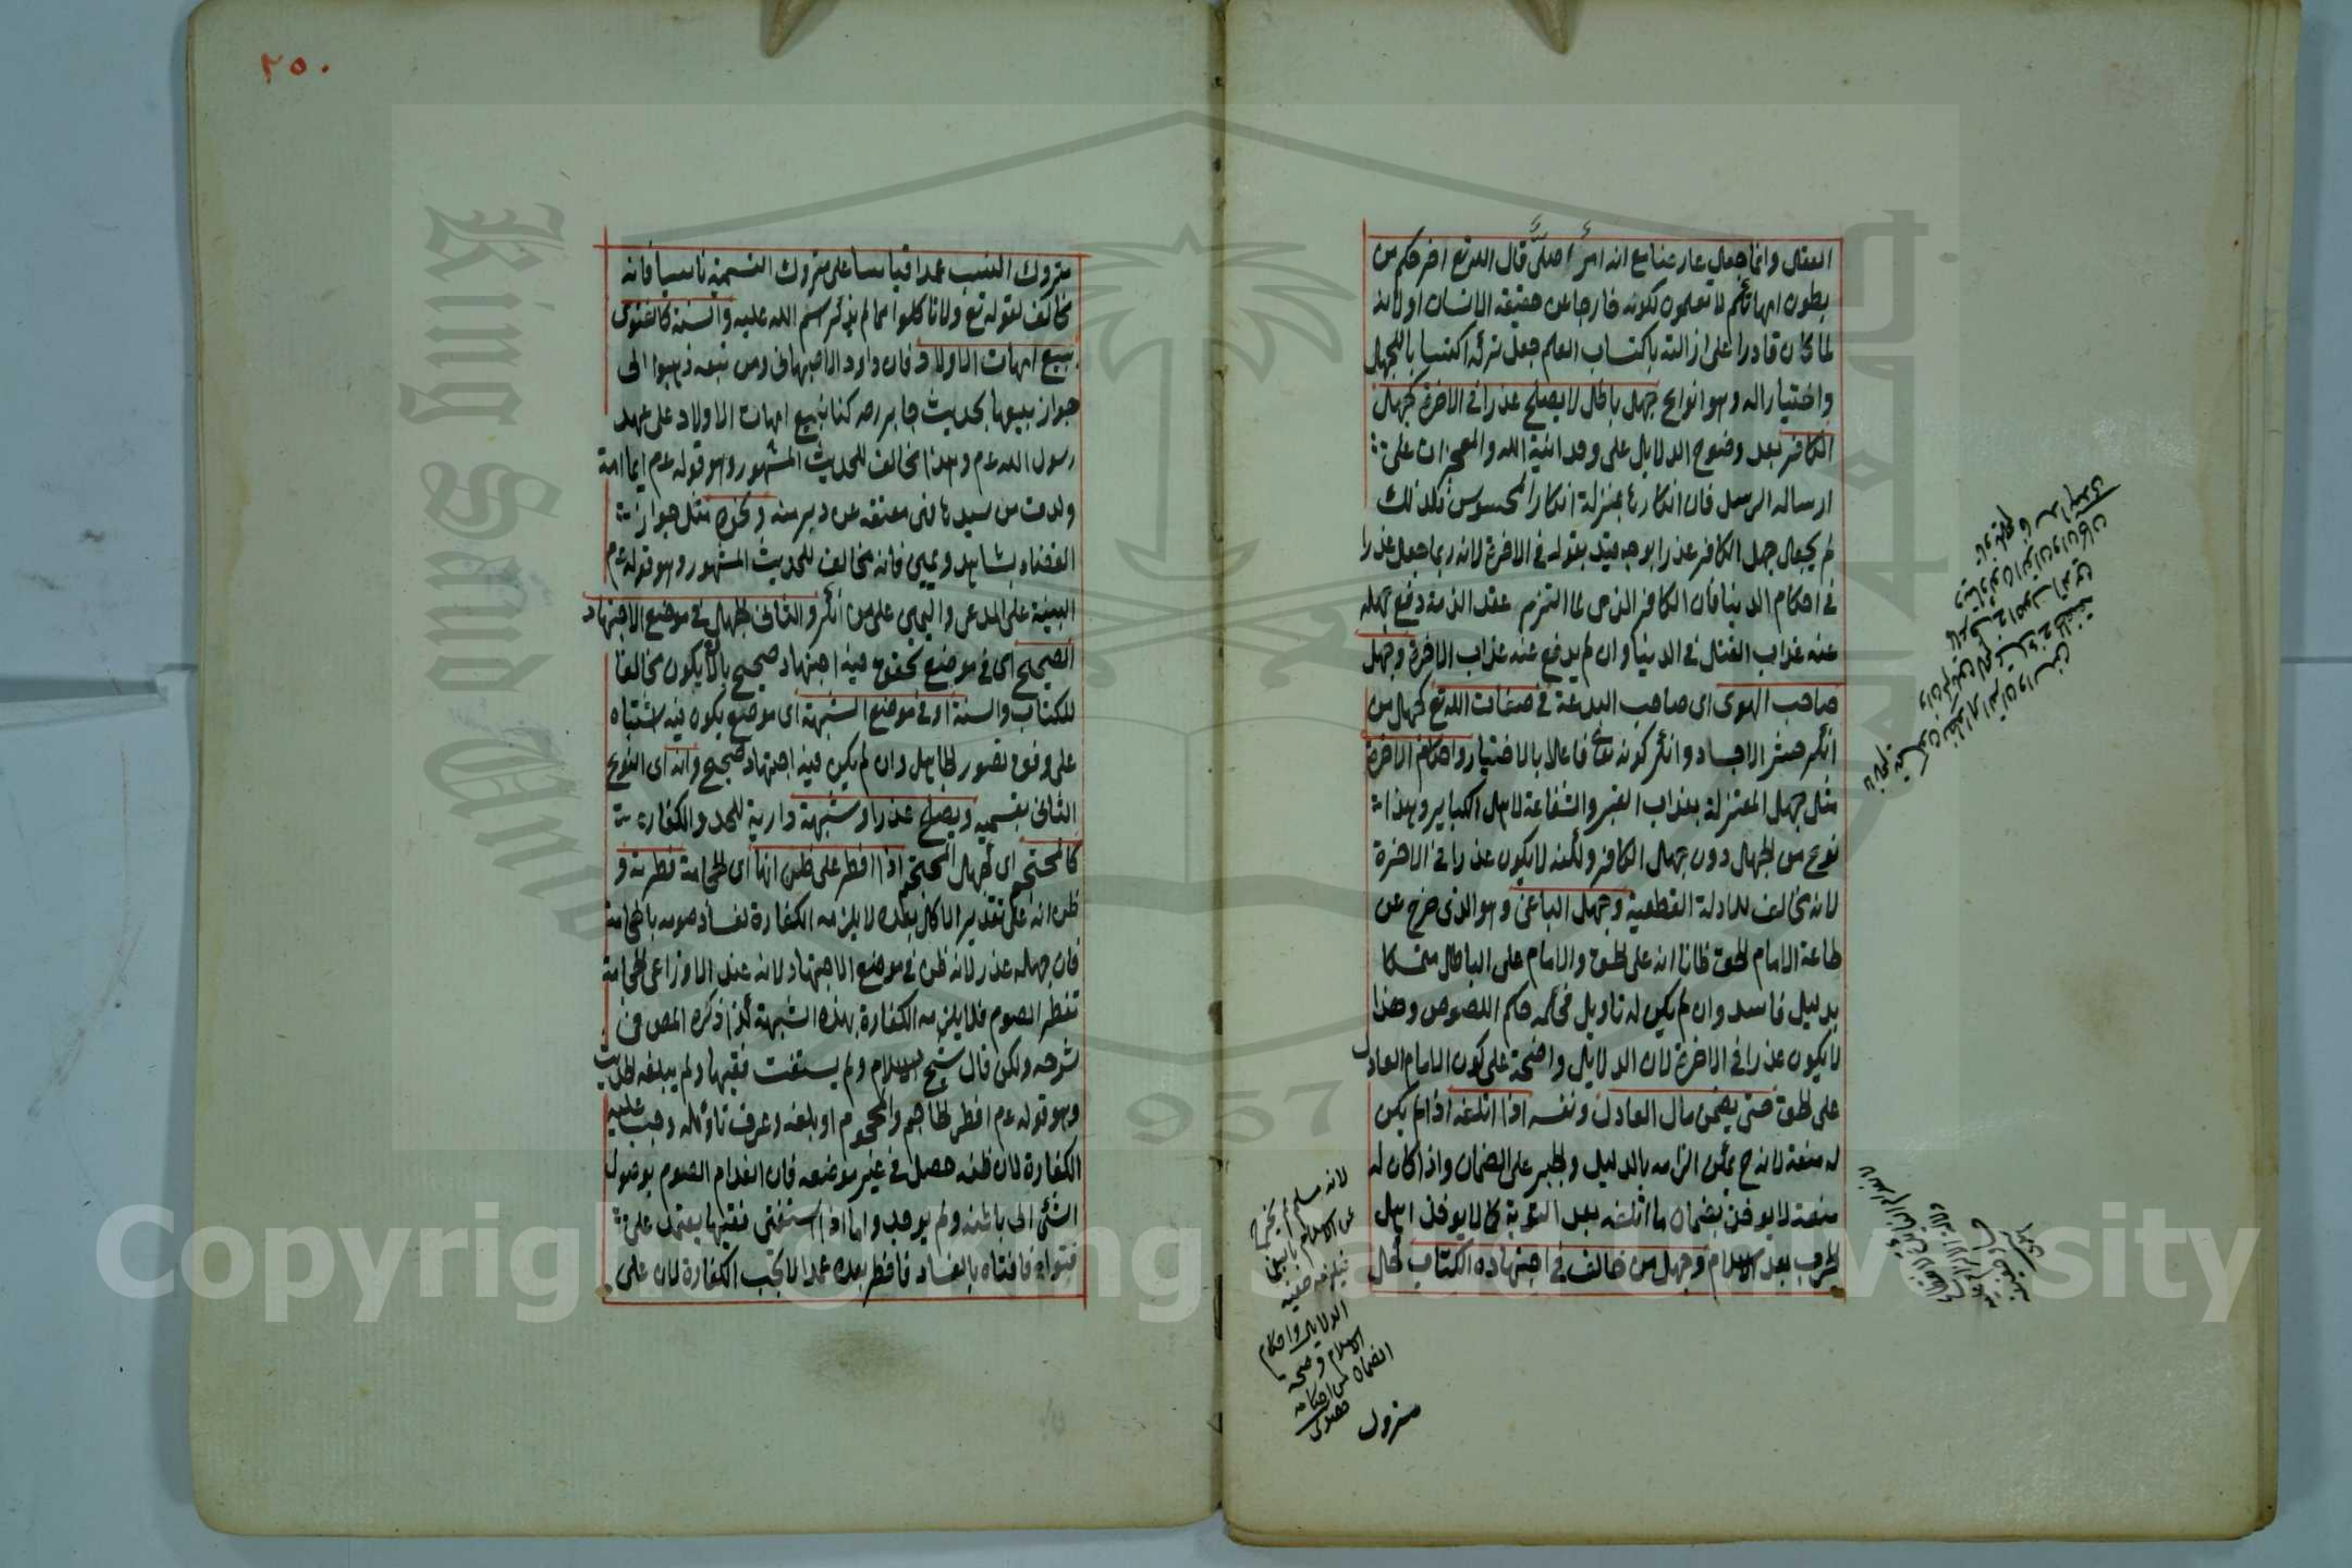 العقل وانما جعل عارضا مع انه امر اصلى قال الله تع اخرجكم من
بطون امهاتكم لا تعلمون لكونه خارجا عن حقيقة الانسان او لانه
لما كان قادرا على ازالته باكتساب العلم جعل تركه اكتسابا للجهل
واختيارا له وهو انواع جهل باطل لا يصلح عذرا فى الاخرة كجهل
الكافر بعد وضوح الدلايل على وحدانية الله والمعجزات على
ارسال الرسل فان انكارها بمنزلة انكار المحسوس فلذلك
لم يجعل جهل الكافر عذرا بوجه قيد بقوله فى الاخرة لانه ربما جعل عذرا
فى احكام الدنيا فان الكافر الذمى لما التزم عقد الذمة دفع جهله
عنه عذاب القتل فى الدنيا وان لم يدفع عنه عذاب الاخرة وجهل
صاحب الهوى اى صاحب البدعة فى صفات الله تع كجهل من
انكر حشر الاجساد وانكر كونه تعا فاعلا بالاختيار واحكام الاخرة
مثل جهل المعتزلة بعذاب القبر والشفاعة لاهل الكباير وهذا
نوع من الجهل دون جهل الكافر ولكنه لا يكون عذرا فى الاخرة
لانه مخالف للادلة القطعية وجهل الباغى وهو الذى خرج عن
طاعة الامام الحق ظانا انه على الحق والامام على الباطل متمسكا
بدليل فاسد وان لم يكن له تاويل فحكمه حكم اللصوص وهذا
لا يكون عذرا فى الاخرة لان الدلايل واضحة على كون الامام العادل
على الحق حتى يضمن مال العادل ونفسه اذا اتلفه اذا لم يكن
له منعة لانه ح يمكن الزامه بالدليل والجبر على الضمان واذا كان له
منعة لا يوخذ بضمان ما اتلفه بعد التوبة كما لا يوخذ اهل
الحرب بعد الاسلام وجهل من خالف فى اجتهاده الكتاب كحل
لانه مسلم لم يخرج
عن الاسلام بالبغى
الدلايل واحكام
الاسلام وصحة
الضمان من احكامه
٢٥٠
متروك التسمية عمدا قياسا على متروك التسمية ناسيا فانه
مخالف لقوله تع ولا تاكلوا مما لم يذكر اسم الله عليه والسنة كالفتوى
ببيع امهات الاولاد فان داود الاصبهانى ومن تبعه ذهبوا الى
جواز بيعها بحديث جابر رضه كنا نبيع امهات الاولاد على عهد
رسول الله عم وهذا مخالف للحديث المشهور وهو قوله عم ايما امة
ولدت من سيدها فهى معتقة عن دبر منه ونحوه مثل جواز
القضاء بشاهد ويمين فانه مخالف للحديث المشهور وهو قوله عم
البينة على المدعى واليمين على من انكر والثانى الجهل فى موضع الاجتهاد
الصحيح اى فى موضع تحقق فيه اجتهاد صحيح بان لا يكون مخالفا
للكتاب والسنة او فى موضع الشبهة اى موضع يكون فيه اشتباه
على وفق تصور الجاهل وان لم يكن فيه اجتهاد صحيح وانه اى النوع
الثانى بقسميه ويصلح عذرا وشبهة دارية للحد والكفارة
كالمحتجم اى كجهل المحتجم اذا افطر على ظن انها اى الحجامة فطرته و
ظن انه على تقدير الاكل بعده لا يلزمه الكفارة لفساد صومه بالحجامة
فان جهله عذر لانه ظن فى موضع الاجتهاد لانه عند الاوزاعى الحجامة
تفطر الصوم فلا يلزمه الكفارة بهذه الشبهة كذا ذكره المص فى
شرحه ولكن قال شيخ الاسلام ولم يستفت فقيها ولم يبلغه الحديث
وهو قوله عم افطر الحاجم والمحجوم او بلغه وعرف تاويله وجب عليه
الكفارة لان ظنه حصل فى غير موضعه فان انعدام الصوم بوصول
الشئ الى باطنه ولم يوجد واما اذا استفتى فقيها يعتمد على
فتواه فافتاه بالفساد فافطر بعده عمدا لا تجب الكفارة لان على